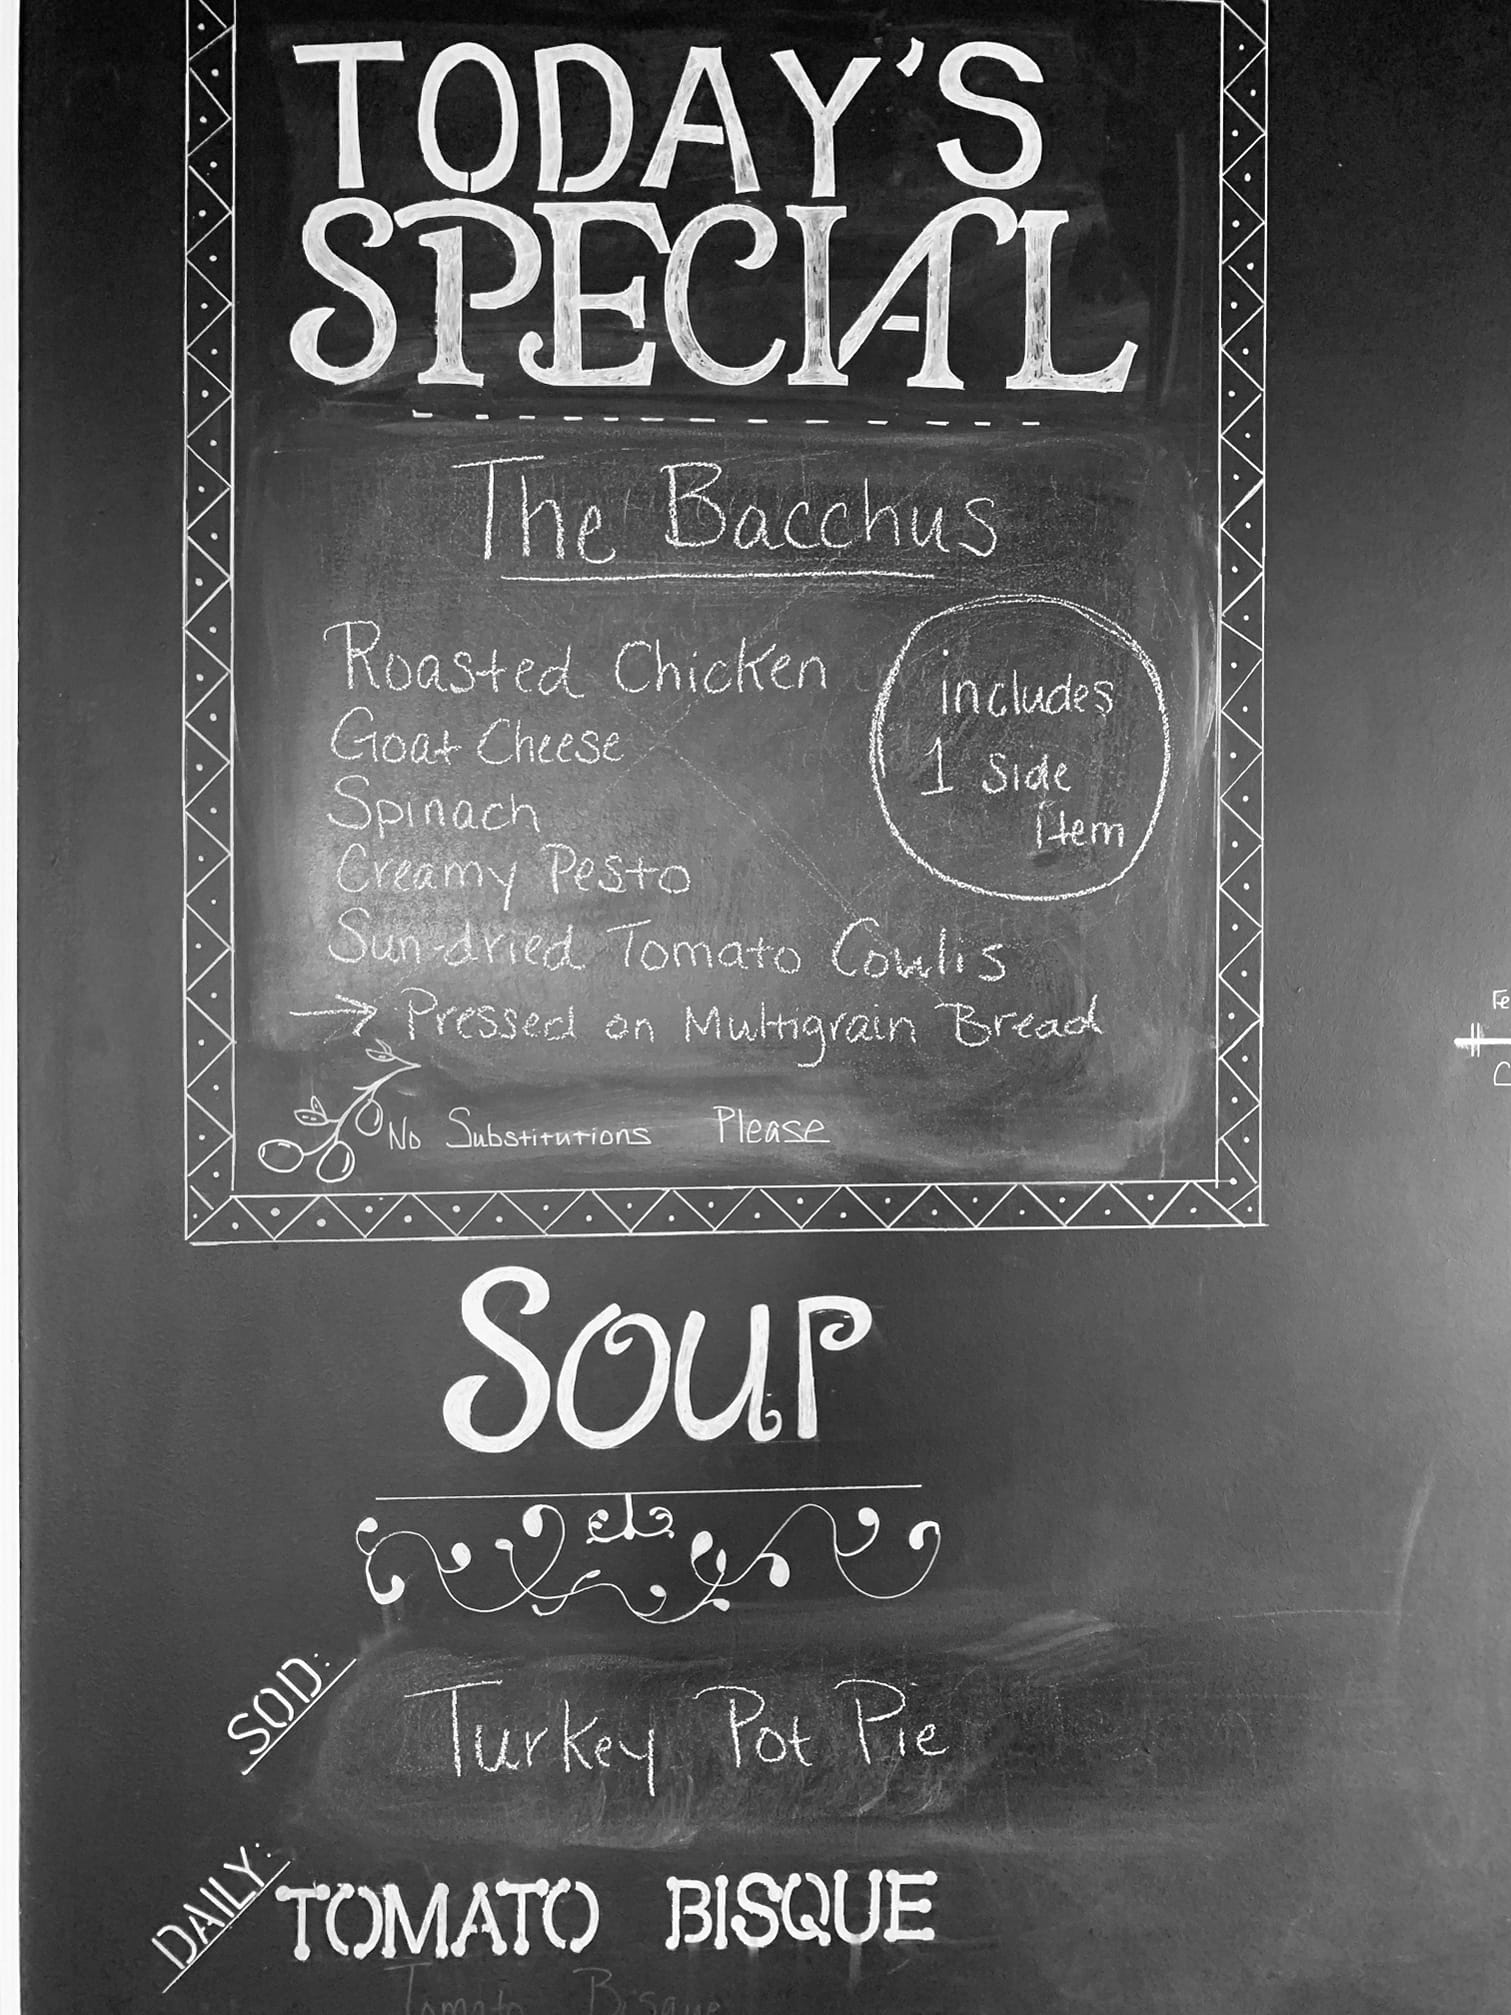 TODAY'S
SPECIAL
The Bacchus
Roasted Chicken
Goat Cheese
Spinach
Creamy Pesto
Sun-dried Tomato Coulis
→ Pressed on Multigrain Bread
includes
1 side
item
No Substitutions Please
SOUP
SOD:
Turkey Pot Pie
DAILY:
TOMATO BISQUE
Tomato Bisque